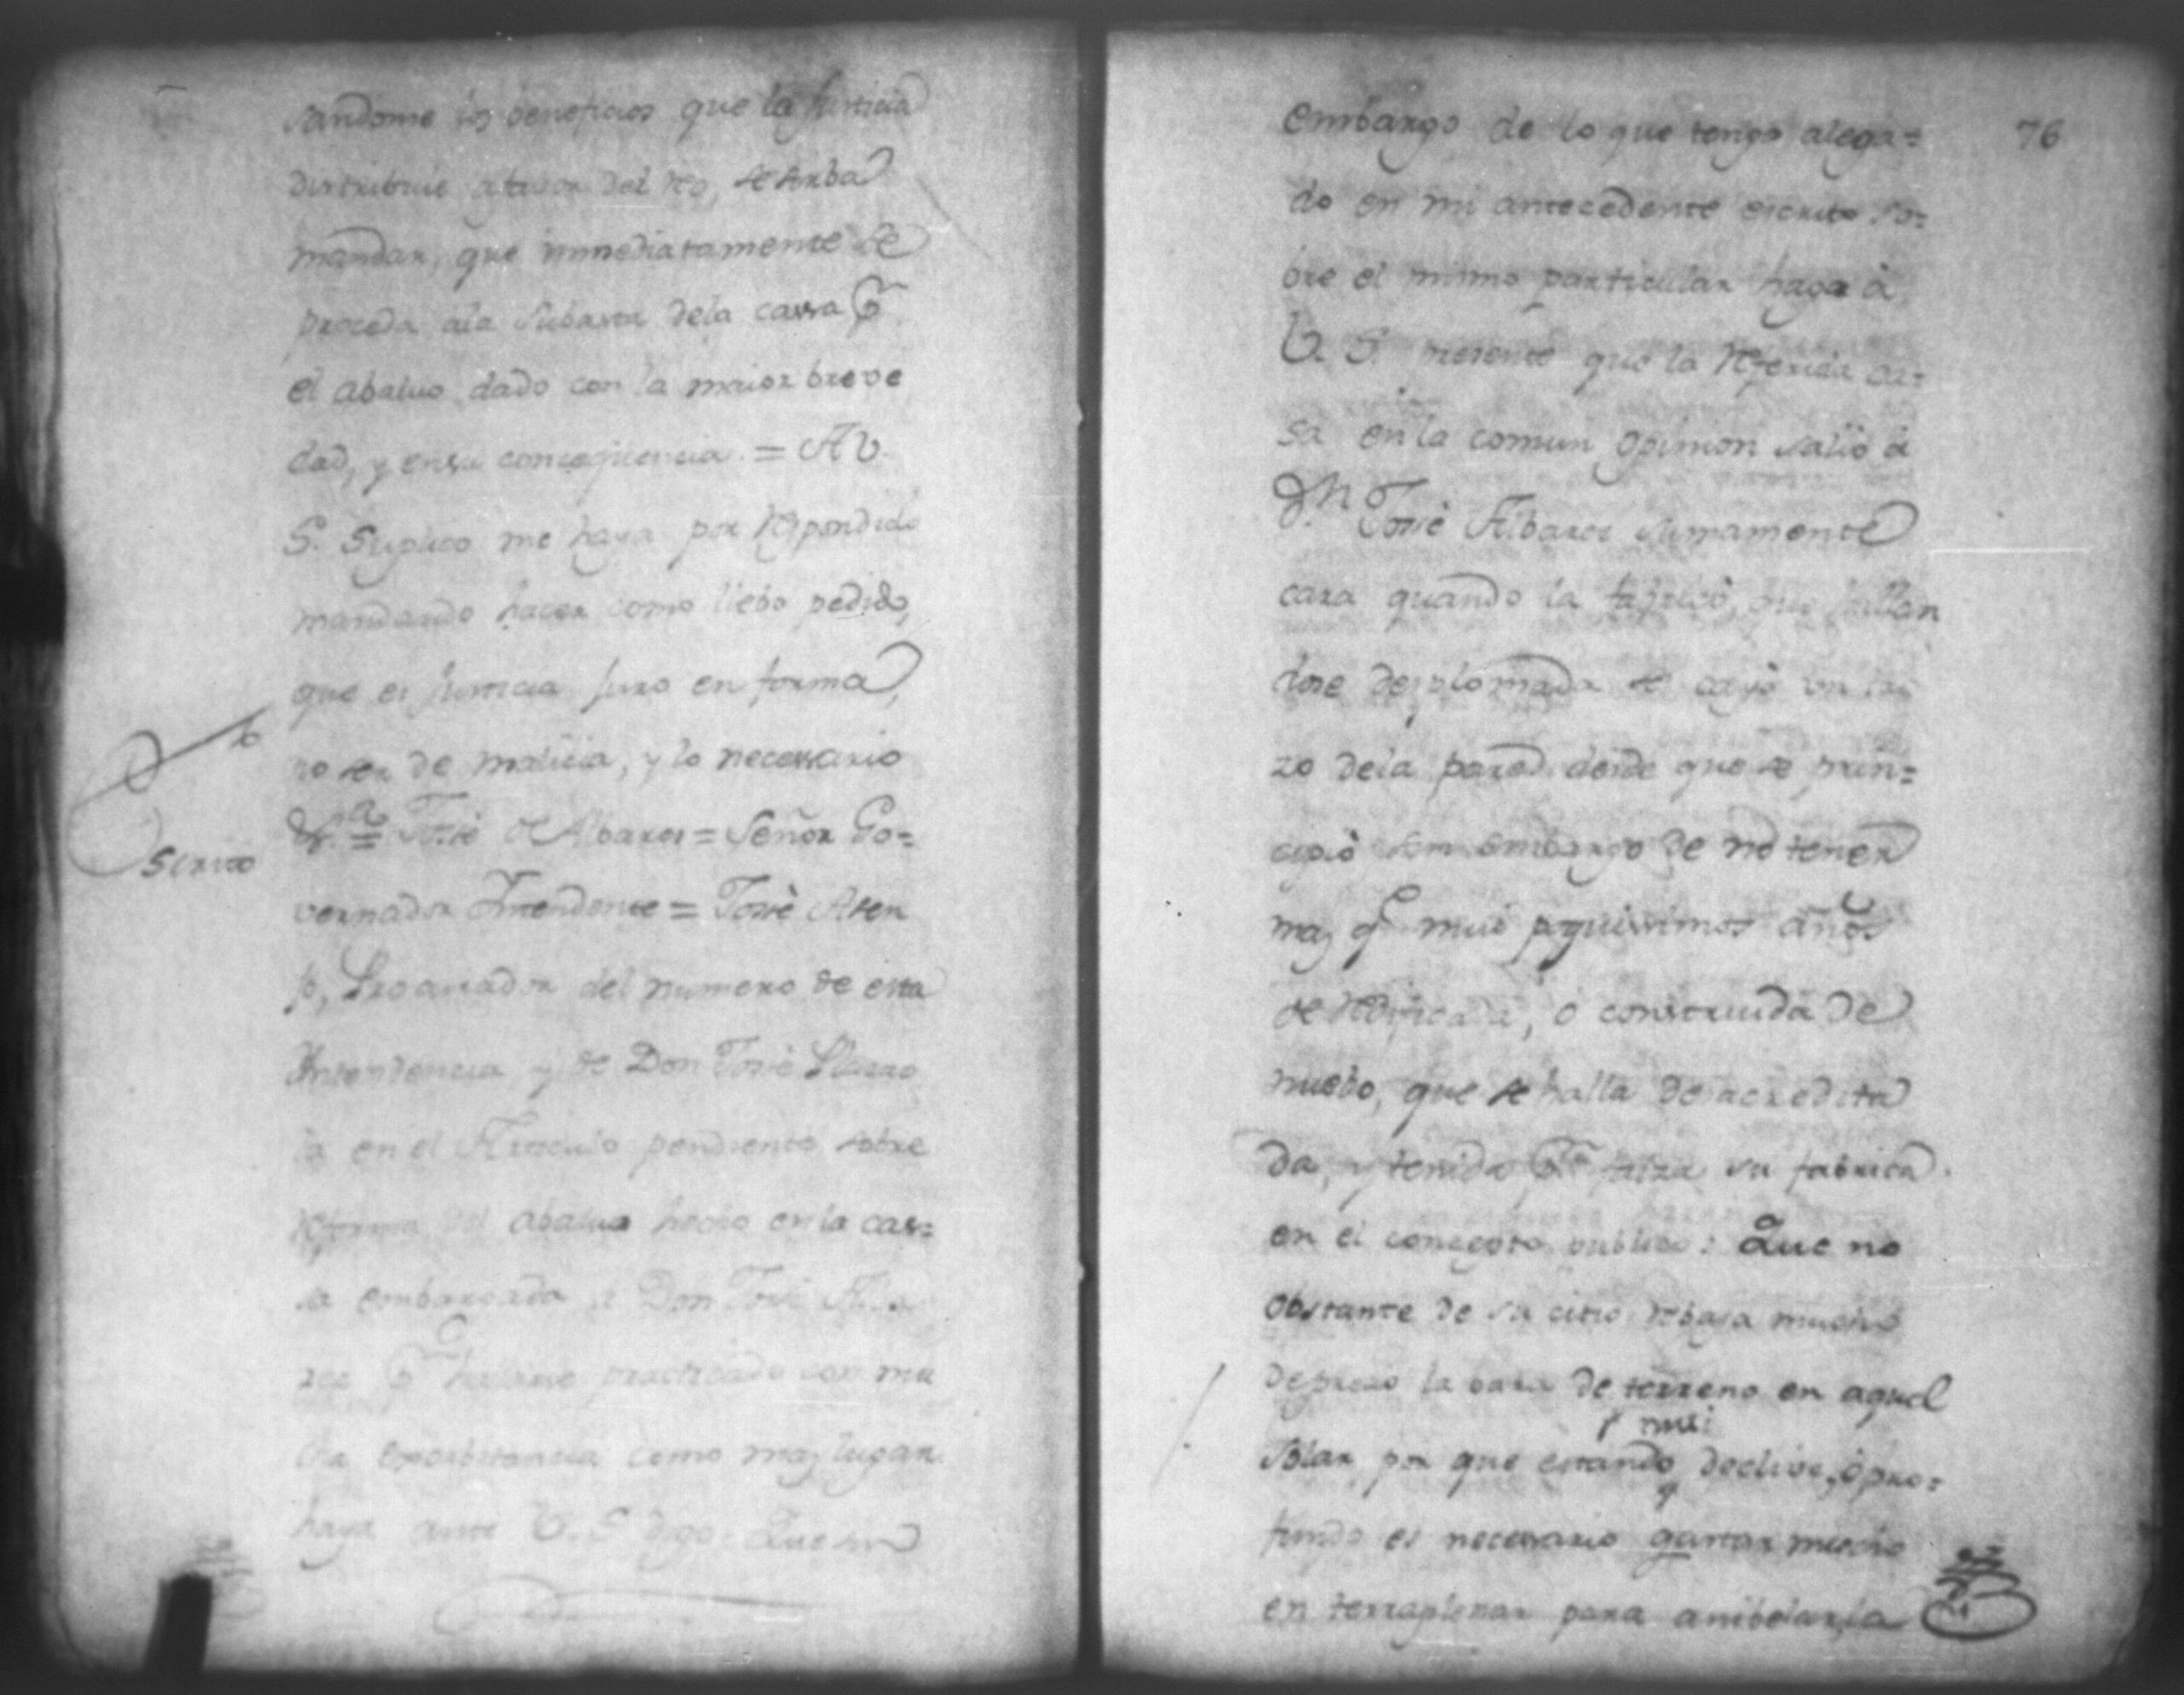 sandome los beneficios que la Justicia
distribuie afabor del Rô, se sirba
mandar, que inmediatamente se
proceda ala Subasta dela cassa pr
el abaluo dado con la maior breve
dad, y ensu conseqüencia. = A V.
S. Suplico me haya por Respondido
mandando hacer como llebo pedido,
que es Justicia Juro en forma,
no ser de malicia, y lo necessario
&.ª = Josè de Albares = Señor Go=
Scrito
vernador Yntendente = Josè Asen
jo, Procurador del numero de esta
Yntendencia y de Don Josè
en el Articulo pendiente sobre
Reforma del abaluo hecho en la cas=
sa embargada a Don Josè Alba
res pr haverse practicado con mu
cha exorbitancia como mas lugar
haya ante V. S digo: Que sin
76
embargo de lo que tengo alega=
do en mi antecedente escrito so=
bre el mismo particular hago à
V. S. presente que la Referida ca=
sa en la comun opinion salió á
Dn Josè Albares sumamente
cara quando la fabricó, que hallan
dose desplomada se cayó un lien
zo dela pared desde que se prin=
cipió sin embargo de no tener
mas qe mui poquissimos años
de Redificada, ó construida de
nuebo, que se halla desacredita
da, y tenida pr falza su fabrica
en el concepto publico: Que no
obstante de su citio rebaja mucho
deprecio la bara de terreno en aquel
y mui
Solar por que estando declive, ò pro=
fundo es necessario gastar mucho
en terraplenar para anibelarla